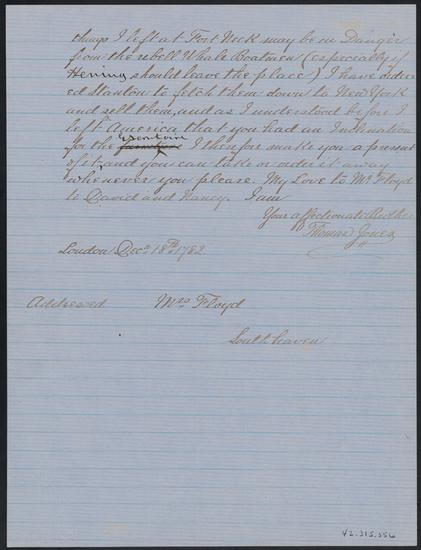 things I left at Fort Neck may be in Danger
from the rebell Whale Boatmen (especially if
Hening should leave the place) I have order
ed Stanton to fetch them down to New York
and sell them, and as I understood before I
left America that you had an Inclination
for the I therefore make you a present
of it, and you can take or order it away
whenever you please. My Love to Mr Floyd
to David and Nancy. I am
Your affectionate Brother
Thomas Jones
London Decr. 18th. 1782.
Addressed Mrs Floyd
South haven
42.315.356